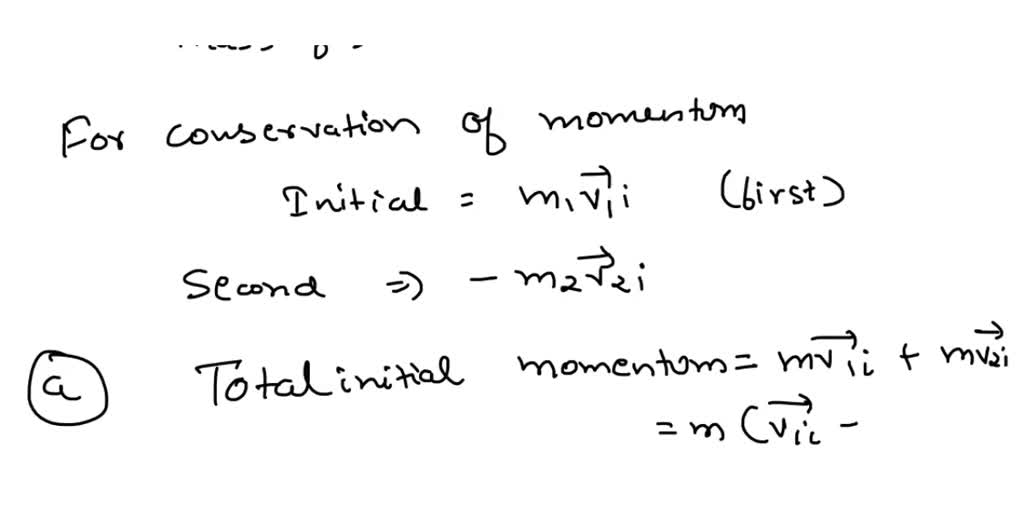 For conservation of momentum
Initial = m₁v⃗₁i (first)
Second ⇒ - m₂v⃗₂i
(a) Total initial momentum = mv⃗₁i + mv⃗₂i
= m (v⃗₁i -